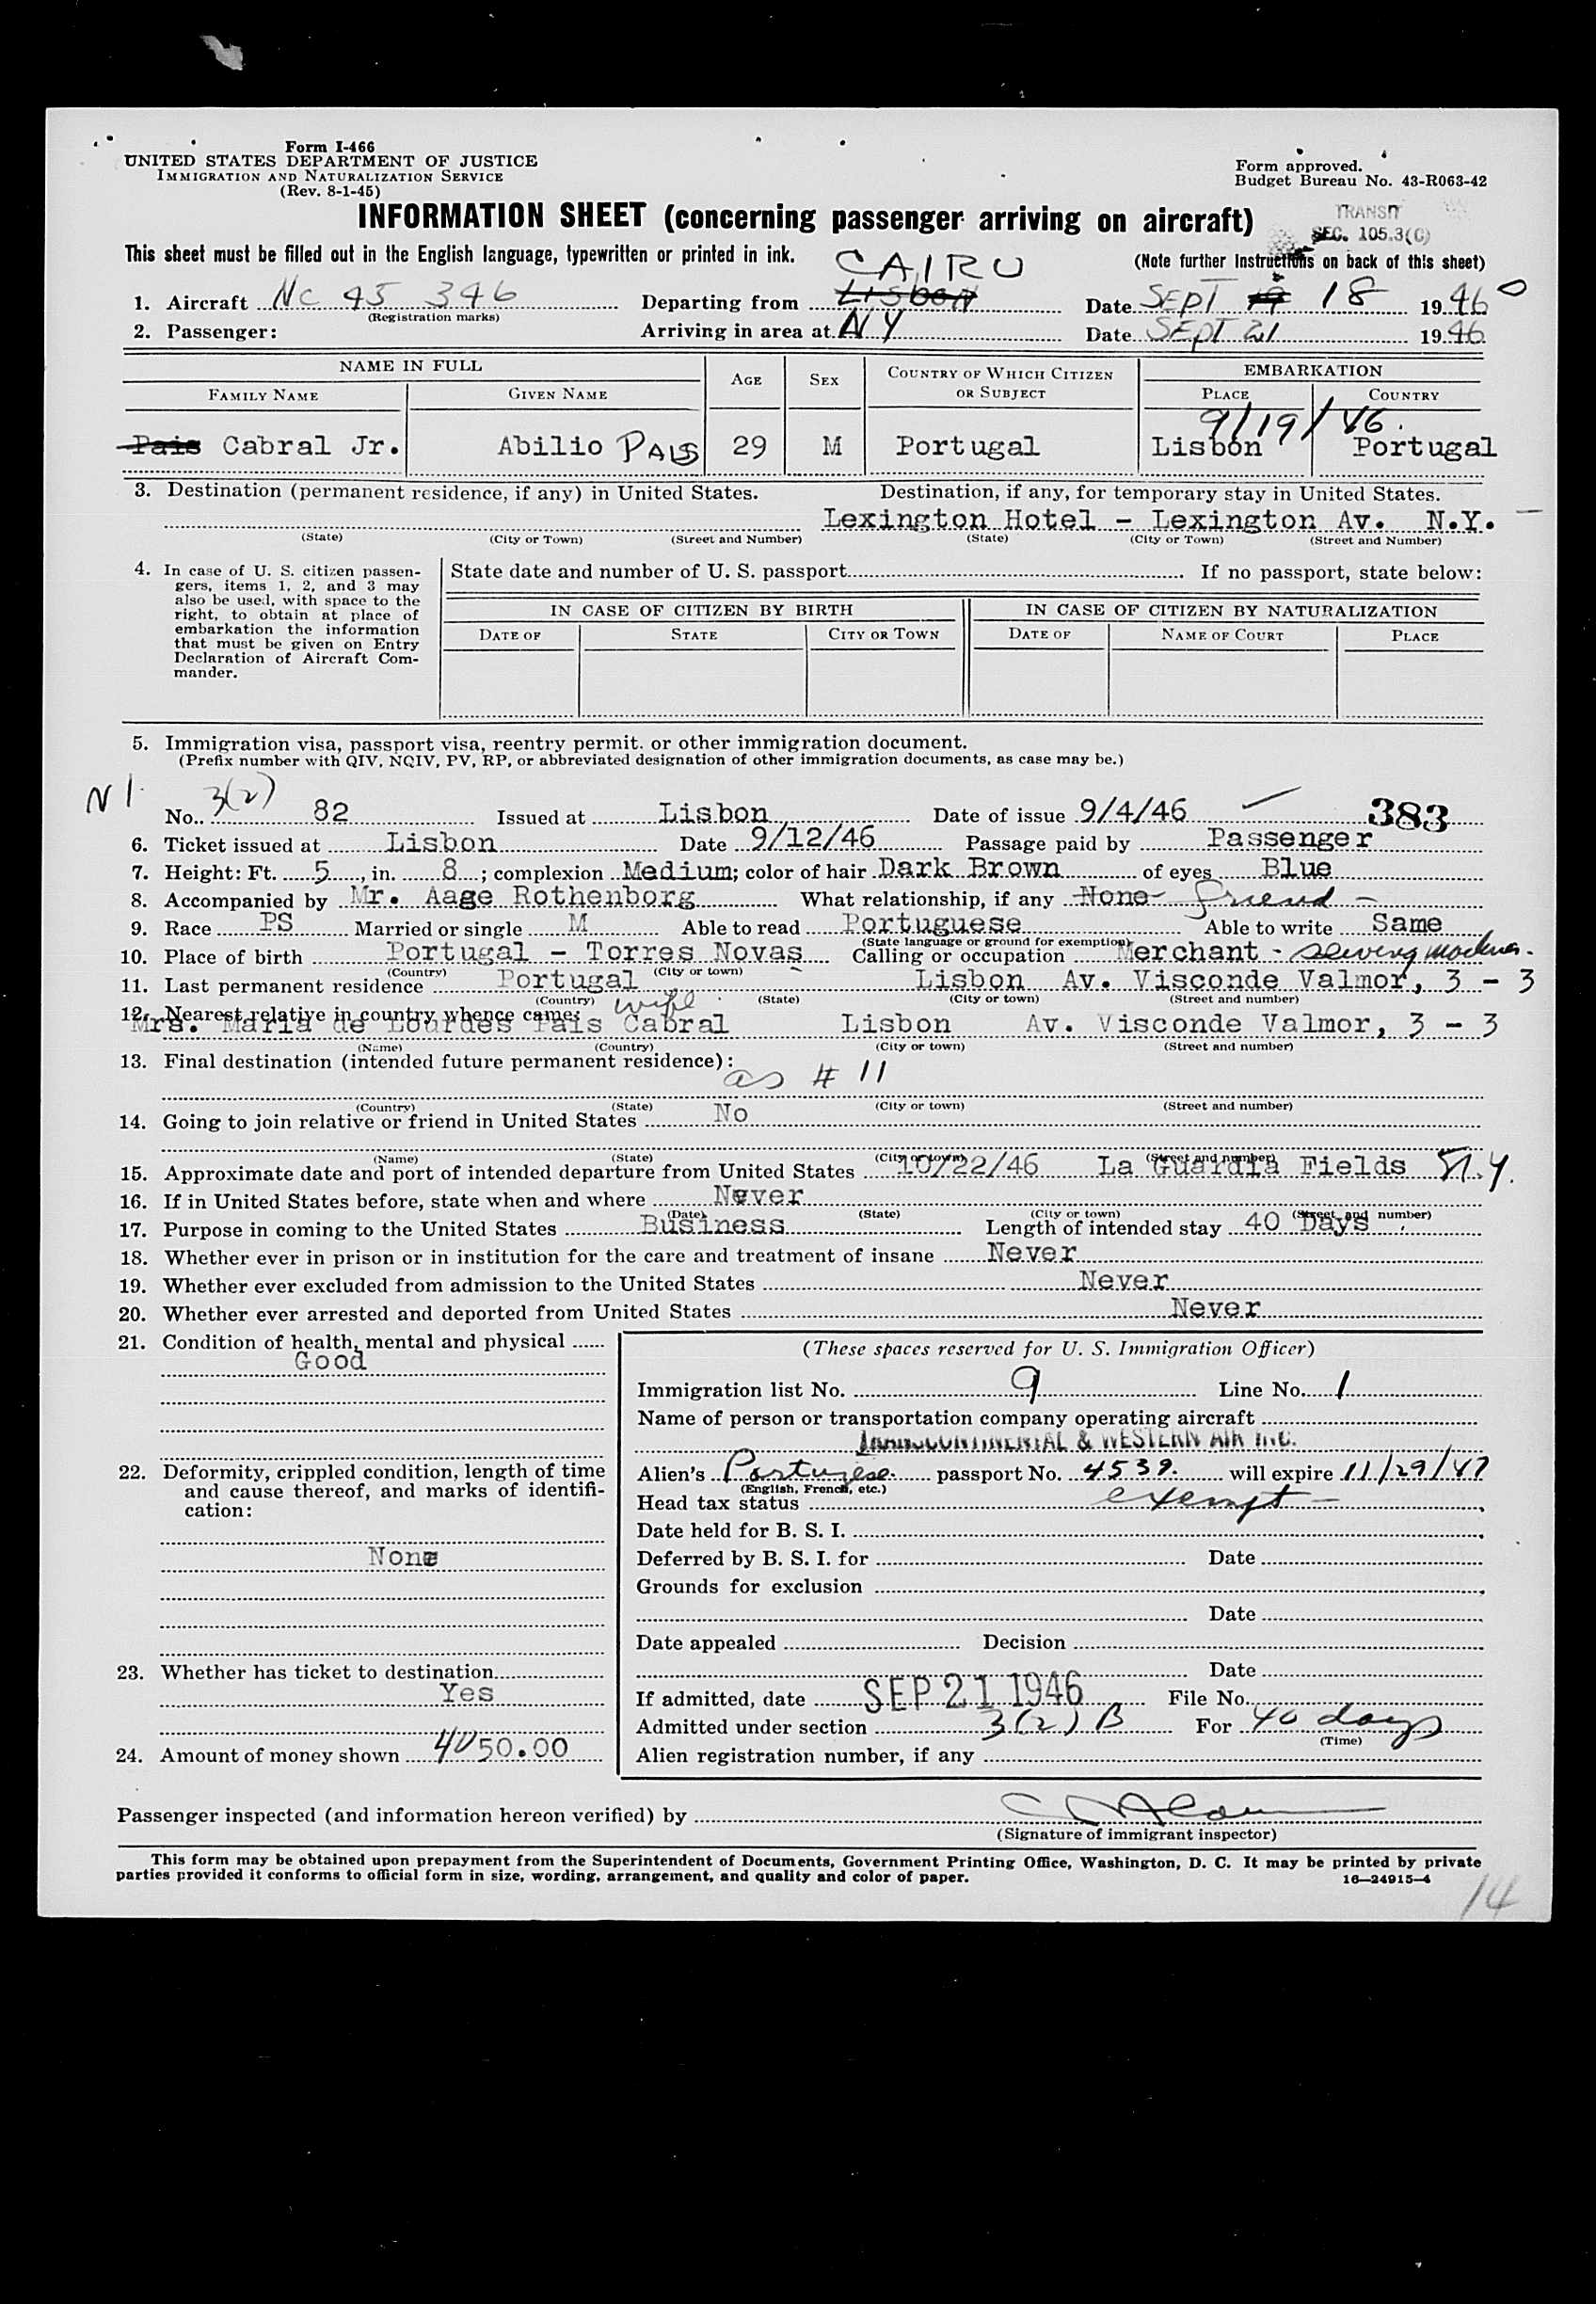 Form I-466
UNITED STATES DEPARTMENT OF JUSTICE
IMMIGRATION AND NATURALIZATION SERVICE
(Rev. 8-1-45)
Form approved.
Budget Bureau No. 43-R063-42
INFORMATION SHEET (concerning passenger arriving on aircraft)
TRANSIT
SEC. 105.3(C)
This sheet must be filled out in the English language, typewritten or printed in ink.
(Note further Instructions on back of this sheet)
CAIRO
1. Aircraft NC 45 346 Departing from LISBON Date SEPT 19 18 1946
(Registration marks)
2. Passenger: Arriving in area at NY Date SEPT 21 1946
NAME IN FULL AGE SEX COUNTRY OF WHICH CITIZEN OR SUBJECT EMBARKATION
FAMILY NAME GIVEN NAME PLACE COUNTRY
9/19/46.
Pais Cabral Jr. Abilio PAIS 29 M Portugal Lisbon Portugal
3. Destination (permanent residence, if any) in United States. Destination, if any, for temporary stay in United States.
Lexington Hotel - Lexington Av. N.Y.
(State) (City or Town) (Street and Number) (State) (City or Town) (Street and Number)
4. In case of U. S. citizen passengers, items 1, 2, and 3 may also be used, with space to the right, to obtain at place of embarkation the information that must be given on Entry Declaration of Aircraft Commander.
State date and number of U. S. passport If no passport, state below:
IN CASE OF CITIZEN BY BIRTH IN CASE OF CITIZEN BY NATURALIZATION
DATE OF STATE CITY OR TOWN DATE OF NAME OF COURT PLACE
5. Immigration visa, passport visa, reentry permit. or other immigration document.
(Prefix number with QIV, NQIV, PV, RP, or abbreviated designation of other immigration documents, as case may be.)
N I
No. 3(2) 82 Issued at Lisbon Date of issue 9/4/46 383
6. Ticket issued at Lisbon Date 9/12/46 Passage paid by Passenger
7. Height: Ft. 5, in. 8; complexion Medium; color of hair Dark Brown of eyes Blue
8. Accompanied by Mr. Aage Rothenborg What relationship, if any None friend -
9. Race PS Married or single M Able to read Portuguese Able to write Same
(State language or ground for exemption)
10. Place of birth Portugal - Torres Novas Calling or occupation Merchant - sewing machines.
(Country) (City or town)
11. Last permanent residence Portugal Lisbon Av. Visconde Valmor, 3 - 3
(Country) (State) (City or town) (Street and number)
wife
12. Nearest relative in country whence came:
Mrs. Maria de Lourdes Pais Cabral Lisbon Av. Visconde Valmor, 3 - 3
(Name) (Country) (City or town) (Street and number)
13. Final destination (intended future permanent residence):
as # 11
(Country) (State) (City or town) (Street and number)
14. Going to join relative or friend in United States No
(Name) (State) (City or town) (Street and number)
15. Approximate date and port of intended departure from United States 10/22/46 La Guardia Fields N.Y.
16. If in United States before, state when and where Never
(Date) (State) (City or town) (Street and number)
17. Purpose in coming to the United States Business Length of intended stay 40 Days
18. Whether ever in prison or in institution for the care and treatment of insane Never
19. Whether ever excluded from admission to the United States Never
20. Whether ever arrested and deported from United States Never
21. Condition of health, mental and physical
Good
22. Deformity, crippled condition, length of time and cause thereof, and marks of identification:
None
23. Whether has ticket to destination
Yes
24. Amount of money shown 4050.00
(These spaces reserved for U. S. Immigration Officer)
Immigration list No. 9 Line No. 1
Name of person or transportation company operating aircraft
TRANSCONTINENTAL & WESTERN AIR INC.
Alien's Portugese passport No. 4539. will expire 11/29/47
(English, French, etc.)
Head tax status exempt -
Date held for B. S. I.
Deferred by B. S. I. for Date
Grounds for exclusion
Date
Date appealed Decision
Date
If admitted, date SEP 21 1946 File No.
Admitted under section 3(2) B For 40 days
(Time)
Alien registration number, if any
Passenger inspected (and information hereon verified) by
(Signature of immigrant inspector)
This form may be obtained upon prepayment from the Superintendent of Documents, Government Printing Office, Washington, D. C. It may be printed by private
parties provided it conforms to official form in size, wording, arrangement, and quality and color of paper.
16—24915-4
14